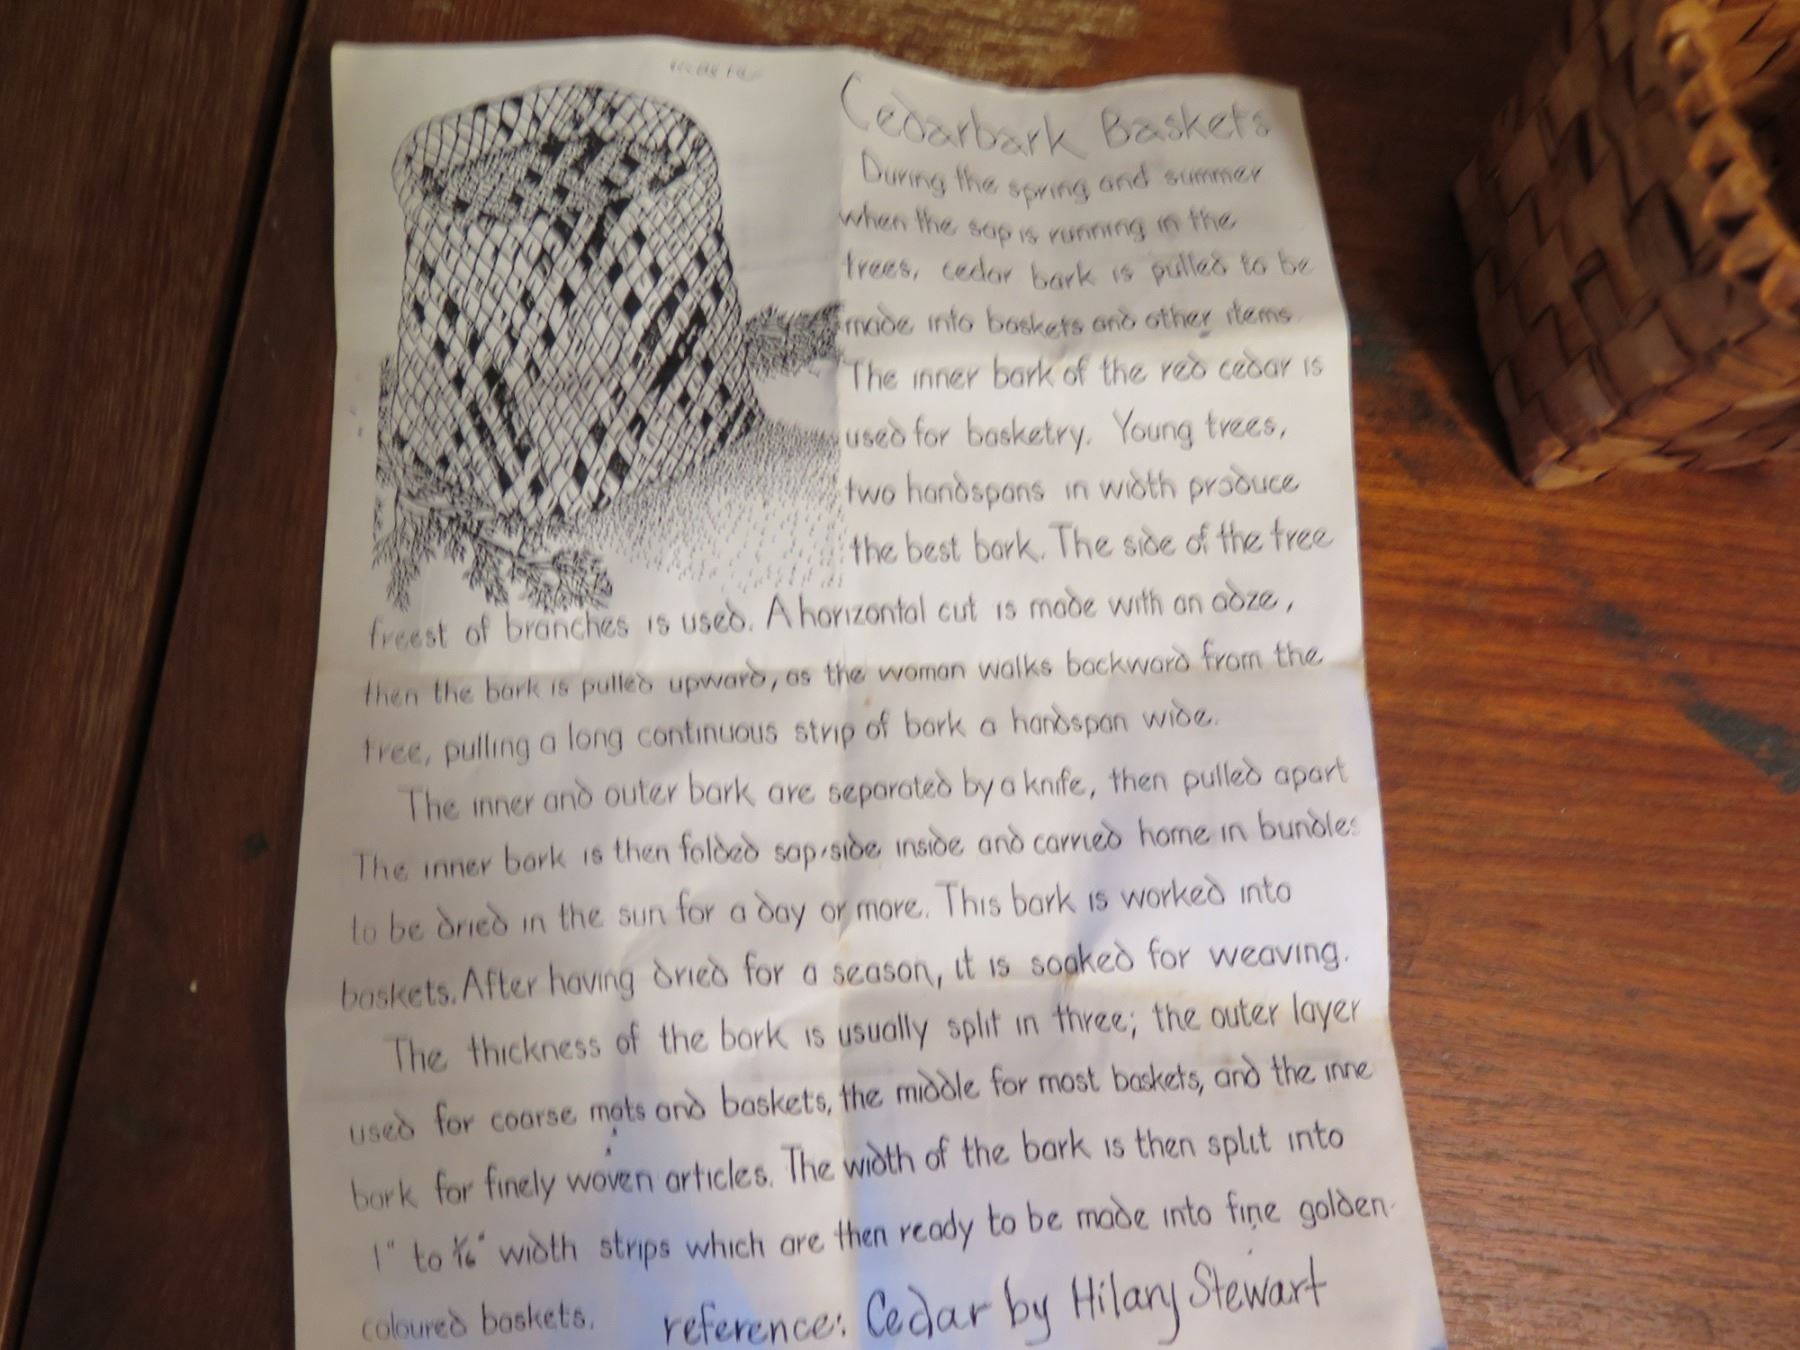 Cedarbark Baskets
During the spring and summer
when the sap is running in the
trees, cedar bark is pulled to be
made into baskets and other items.
The inner bark of the red cedar is
used for basketry. Young trees,
two handspans in width produce
the best bark. The side of the tree
freest of branches is used. A horizontal cut is made with an adze,
then the bark is pulled upward, as the woman walks backward from the
tree, pulling a long continuous strip of bark a handspan wide.
The inner and outer bark are separated by a knife, then pulled apart
The inner bark is then folded sap-side inside and carried home in bundles
to be dried in the sun for a day or more. This bark is worked into
baskets. After having dried for a season, it is soaked for weaving.
The thickness of the bark is usually split in three; the outer layer
used for coarse mats and baskets, the middle for most baskets, and the inne
bark for finely woven articles. The width of the bark is then split into
1" to 1/16" width strips which are then ready to be made into fine golden-
coloured baskets. reference: Cedar by Hilary Stewart